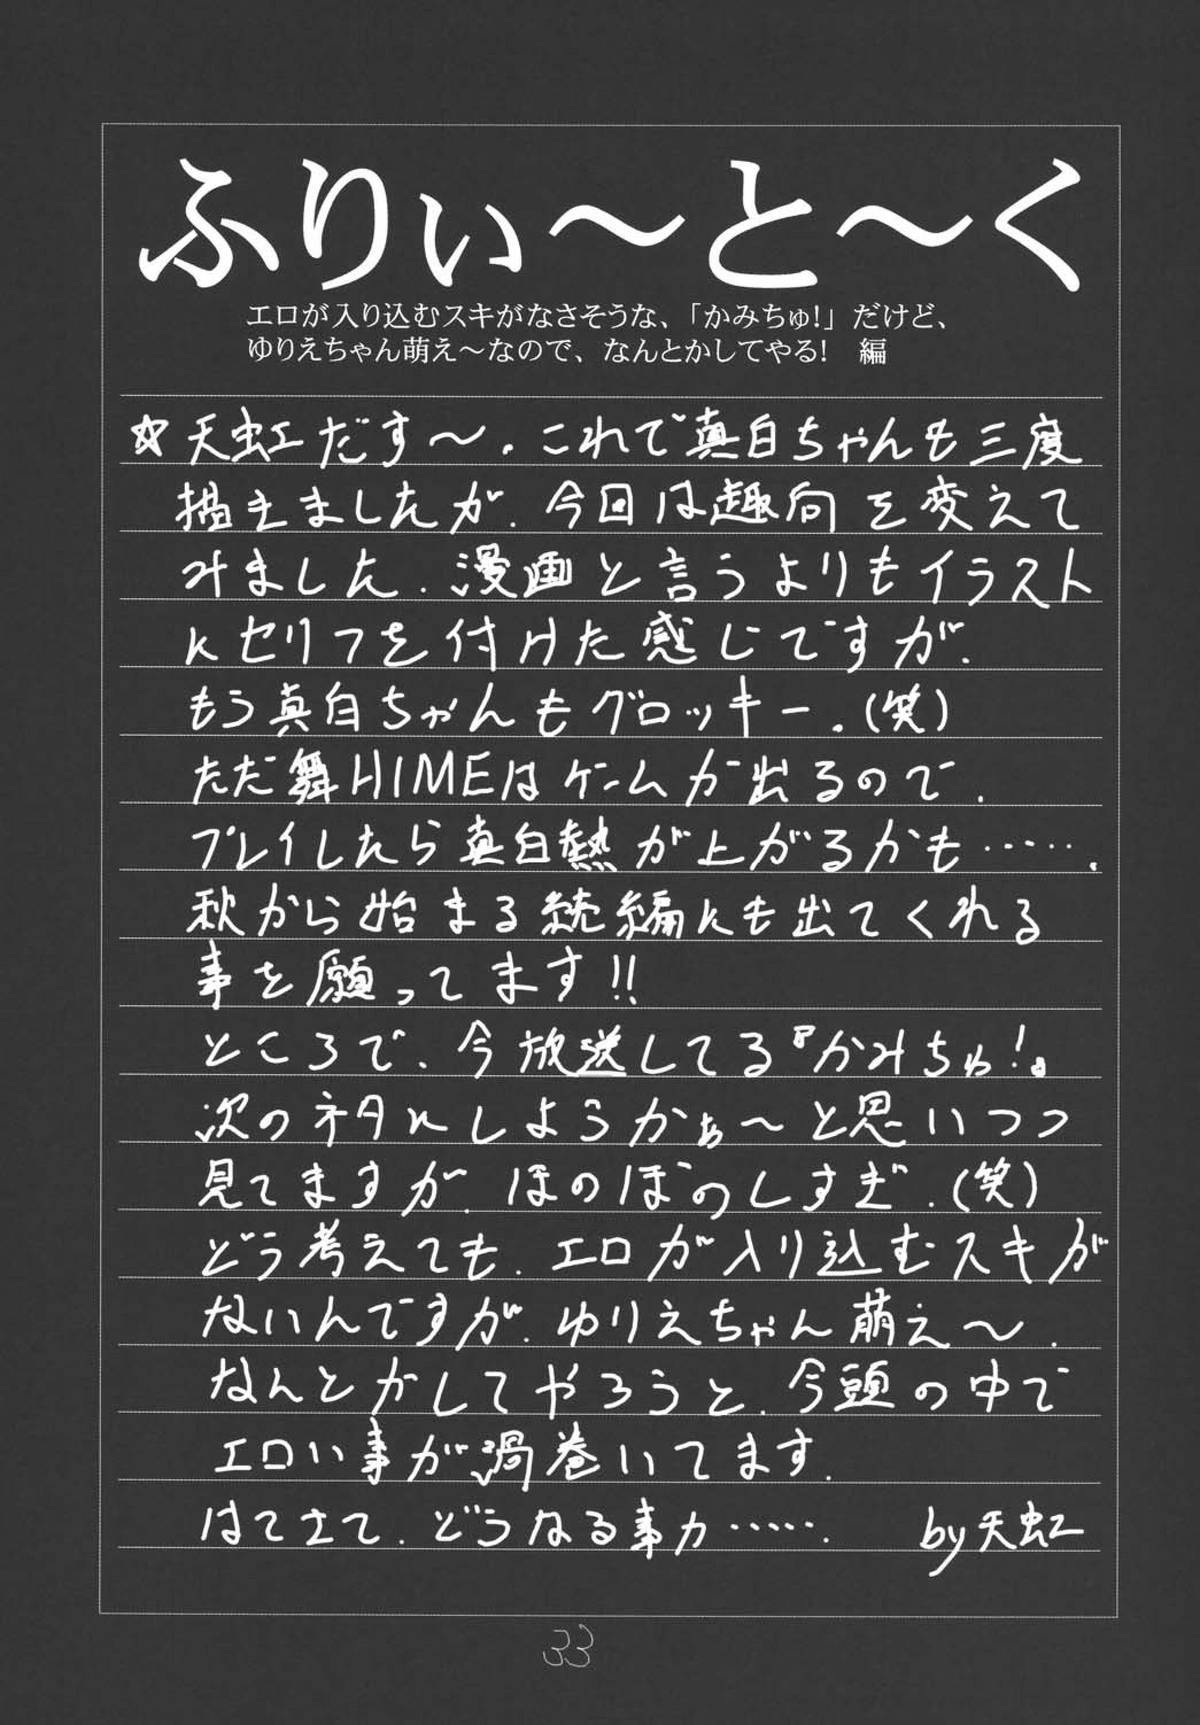 ふりぃ～と～く
エロが入り込むスキがなさそうな、「かみちゅ!」だけど、
ゆりえちゃん萌え～なので、なんとかしてやる!　編
☆天虹だす～。これで真白ちゃんも三度
描きましたが、今回は趣向を変えて
みました。漫画と言うよりもイラスト
にセリフを付けた感じですが、
もう真白ちゃんもグロッキー。(笑)
ただ舞HIMEはゲームが出るので、
プレイしたら真白熱が上がるかも……。
秋から始まる続編にも出てくれる
事を願ってます!!
ところで、今放送してる『かみちゅ!』
次のネタにしようかぁ～と思いつつ
見てますが、ほのぼのしすぎ。(笑)
どう考えても、エロが入り込むスキが
ないんですが、ゆりえちゃん萌え～。
なんとかしてやろうと、今頭の中で
エロい事が渦巻いてます。
はてさて、どうなる事か……。　by天虹
33